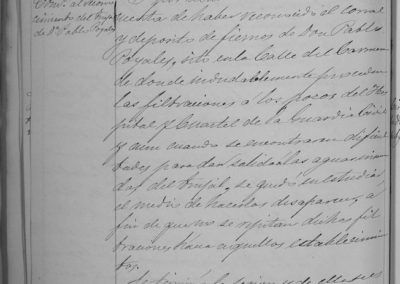 cimiento del Trujal
de Dn Pablo Poyales
nuestra de haber reconocido el corral
y deposito de fiemos de Don Pablo
Poyales, sito en la Calle del Carmen
de donde indudablemente proceden
las filtraciones a los pozos del Hos
pital y Cuartel de la Guardia Civil
y aun cuando se encontraran dificul
tades para dar salida a las aguas
das del trujal, se quedó en estudiar
el medio de hacerlas desaparecer, a
fin de que no se repitan dichas fil
traciones hacia aquellos establecimien
tos.